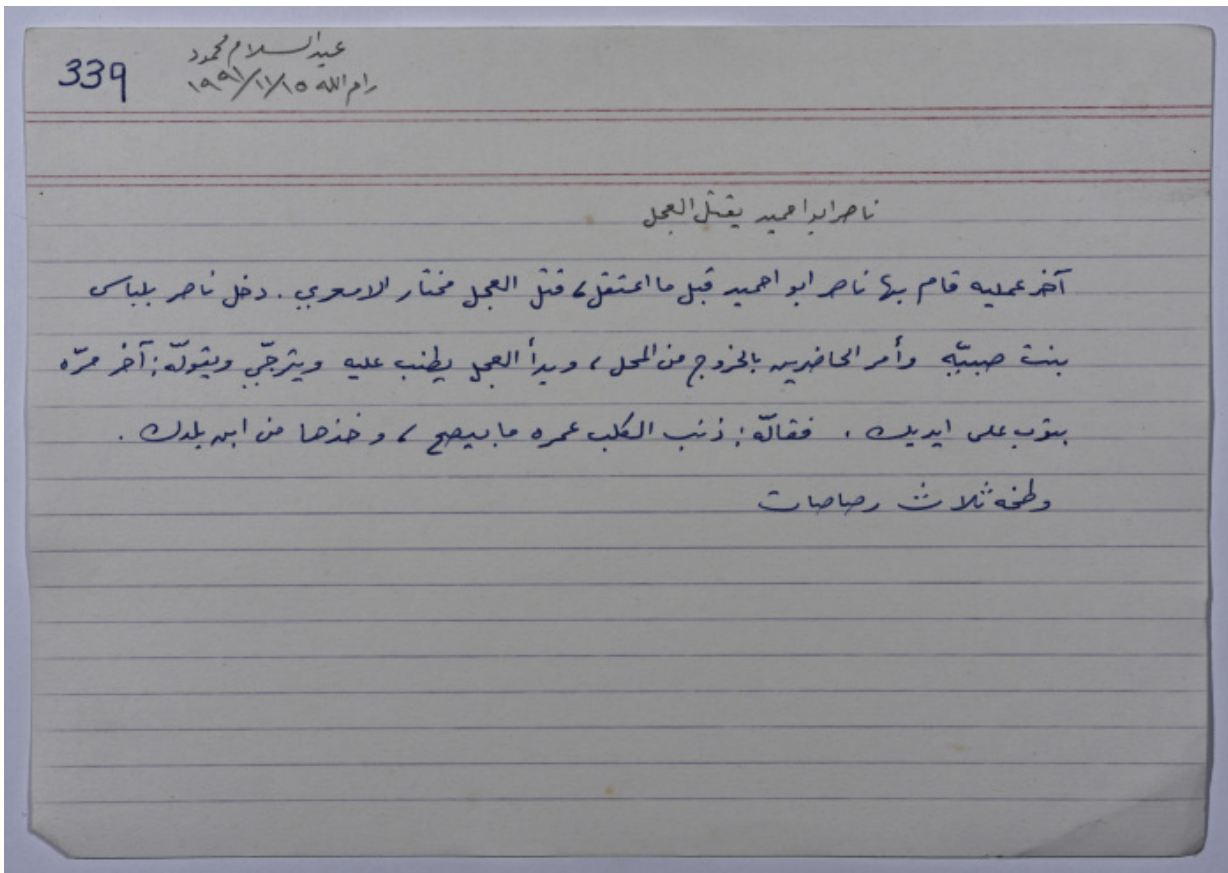 339
عبد السلام محمود
رام الله ١٥/١١/١٩٩١
ناصر ابو احميد يقتل العجل
آخر عمليه قام بها ناصر ابو احميد قبل ما اعتقل، قتل العجل مختار الامعري. دخل ناصر بلباس
بنت صبيّه وأمر الحاضرين بالخروج من المحل، وبدأ العجل يطنب عليه ويترجّى ويقولّه: آخر مرّه
بتوب على ايديك. فقالّه: ذنب الكلب عمره ما بيصح، وخذها من ابن بلدك.
وطخه ثلاث رصاصات